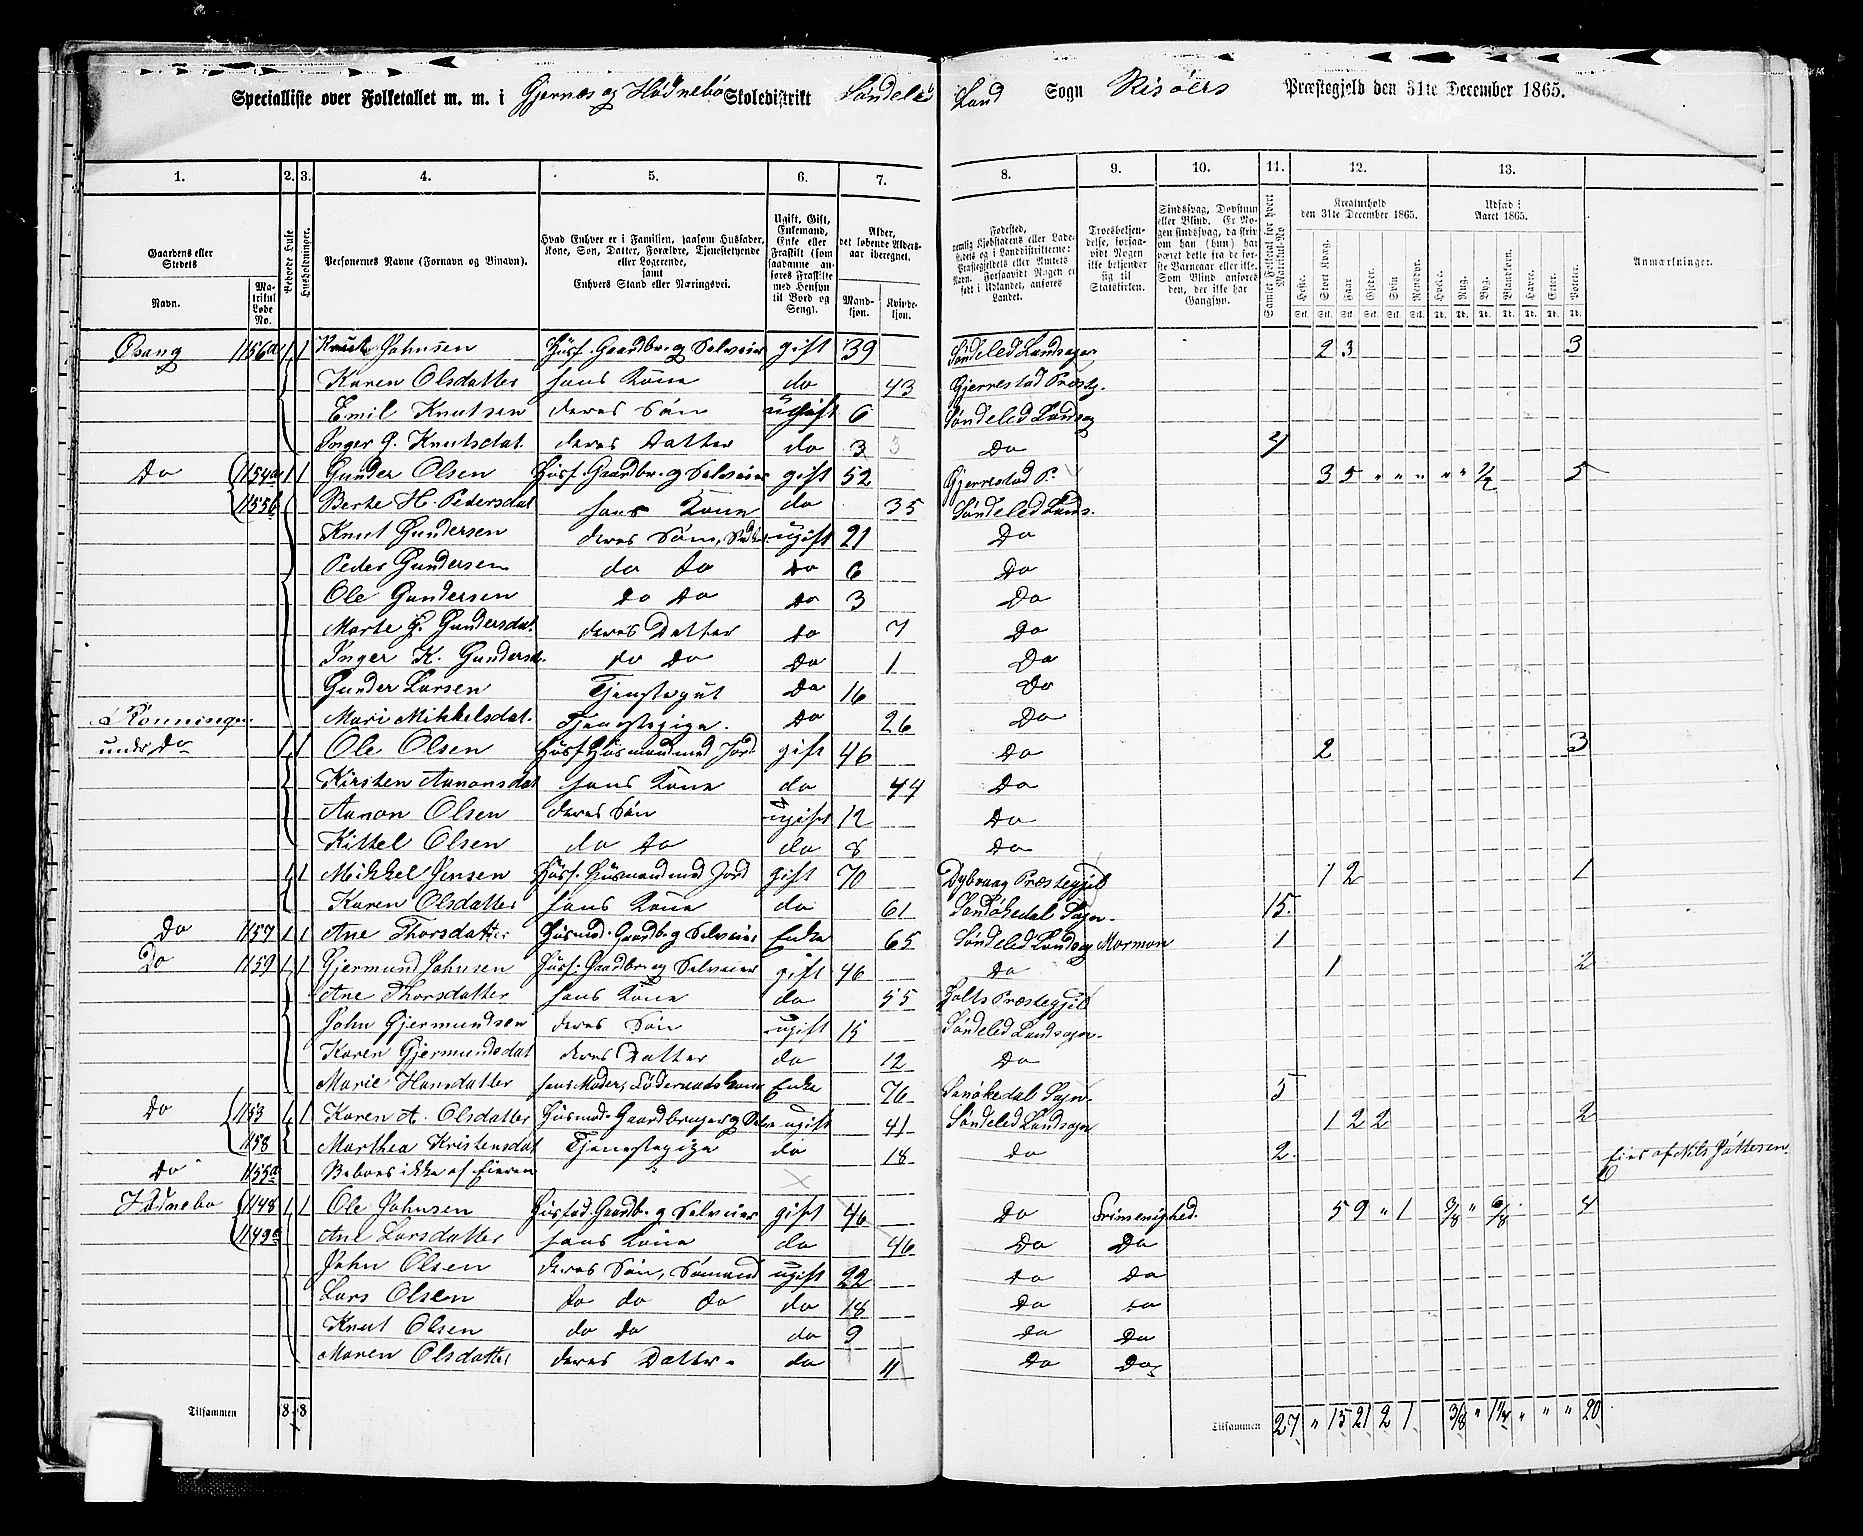 Specialliste over Folketallet m. m. i Gjernes og Hødnebø Skoledistrikt Søndeled Land Sogn Risøers Præstegjeld den 31te December 1865.
1. 2. 3. 4. 5. 6. 7. 8. 9. 10. 11. 12. 13.
Gaardens eller Stedets Navn. Matrikul Løbe No. Beboede Huse Husholdninger. Personernes Navne (Fornavn og Binavn). Hvad Enhver er i Familien, saasom Husfader, Kone, Søn, Datter, Forældre, Tjenestetyende eller Logerende, samt Enhvers Stand eller Næringsvei. Ugift, Gift, Enkemand, Enke eller Fraskilt (som saadanne anføres Fraskilte med Hensyn til Bord og Seng). Alder, det løbende Aldersaar iberegnet. Mandkjøn. Kvindekjøn. Fødested, Troesbekjendelse, forsaavidt Nogen ikke bekjender sig til Statskirken. Sindssvag, Døvstum eller Blind. Samlet Folketal for hvert Matrikul-No Kreaturhold den 31te December 1865. Heste. Stort Kvæg. Faar Gjeder. Svin Rensdyr. Udsæd i Aaret 1865. Hvede. Rug. Byg. Blandkorn. Havre. Erter. Poteter. Anmærkninger.
Øsang 1156a 1 1 Knut Johnsen Husf. Gaardbr. og Selveier gift 39 Søndeled Landsogn 2 3 3
Karen Olsdatter hans Kone do 43 Gjerrestad Præstg.
Emil Knutsen deres Søn ugift 6 Søndeled Landsog
Inger G. Knutsdat. deres Datter do 3 3 Do 4
Do 1154a 1 1 Gunder Olsen Husf. Gaardbr. og Selveier gift 52 Gjerrestad P. 3 5 " " " " " 1/2 5
1155b Berte H. Pedersdat hans Kone do 35 Søndeled Lands.
Knut Gundersen deres Søn, ugift 21 Do
Peder Gundersen do do Do 6 Do
Ole Gundersen Do Do Do 3 Do
Marte G. Gundersdat. deres Datter Do 7 Do
Inger K. Gundersd. do Do Do 1 Do
Gunder Larsen Tjenestegut Do 16 Do
Rønningen Mari Mikkelsdat. Tjenestepige. Do 26 Do
under Do 1 1 Ole Olsen Husf. Husmand med Jord gift 46 Do 2 3
Kirsten Aanonsdat hans Kone do 44 Do
Aanon Olsen deres Søn ugift 12 Do
Kittel Olsen do Do do 8 Do
1 1 Mikkel Jensen Husf. Husmand med Jord gift 70 Dybvaag Præstegjeld 1 2 1
Karen Olsdatter hans Kone do 61 Sandøkedal Sogn. 15.
Do 1157 1 1 Ane Thorsdatter Husmod. Gaardb. og Selveier Enke 65 Søndeled Landsog Mormon 1
Do 1159 1 1 Gjermund Johnsen Husf. Gaardbr. og Selveier gift 46 Do 1 2
Ane Thorsdatter hans Kone do 55 Holts Præstegjeld
John Gjermundsen deres Søn ugift 15 Søndeled Landsogn.
Karen Gjermundsdat deres Datter do 12 Do
Marie Hansdatter hans Moder, Føderaadskone Enke 76 Sanøkedal Sogn. 5
Do 1153 1 1 Karen A. Olsdatter Husmod. Gaardbruger og Selve ugift 41 Søndeled Landsogn 1 2 2 2
1158 Marthea Kristensdat Tjenestepige do 18 Do 2.
Do 1155a Beboes ikke af Eieren Eies af Nils Jøttesen
Hødnebø 1148 1 1 Ole Johnsen Husfad. Gaardb. og Selveier gift 46 Do Frimenighed. 5 9 " 1 3/8 " 6/8 4
1149a Ane Larsdatter hans Kone do 46 Do Do
John Olsen deres Søn, Sømand ugift 22 Do Do
Lars Olsen do do do do 18 Do Do
Knut Olsen do do do 9 Do Do
Maren Olsdatter deres Datter do 11 Do Do
Tilsammen 8 8 Tilsammen 27 " 15 21 2 1 3/8 " 1 1/4 " " " 20